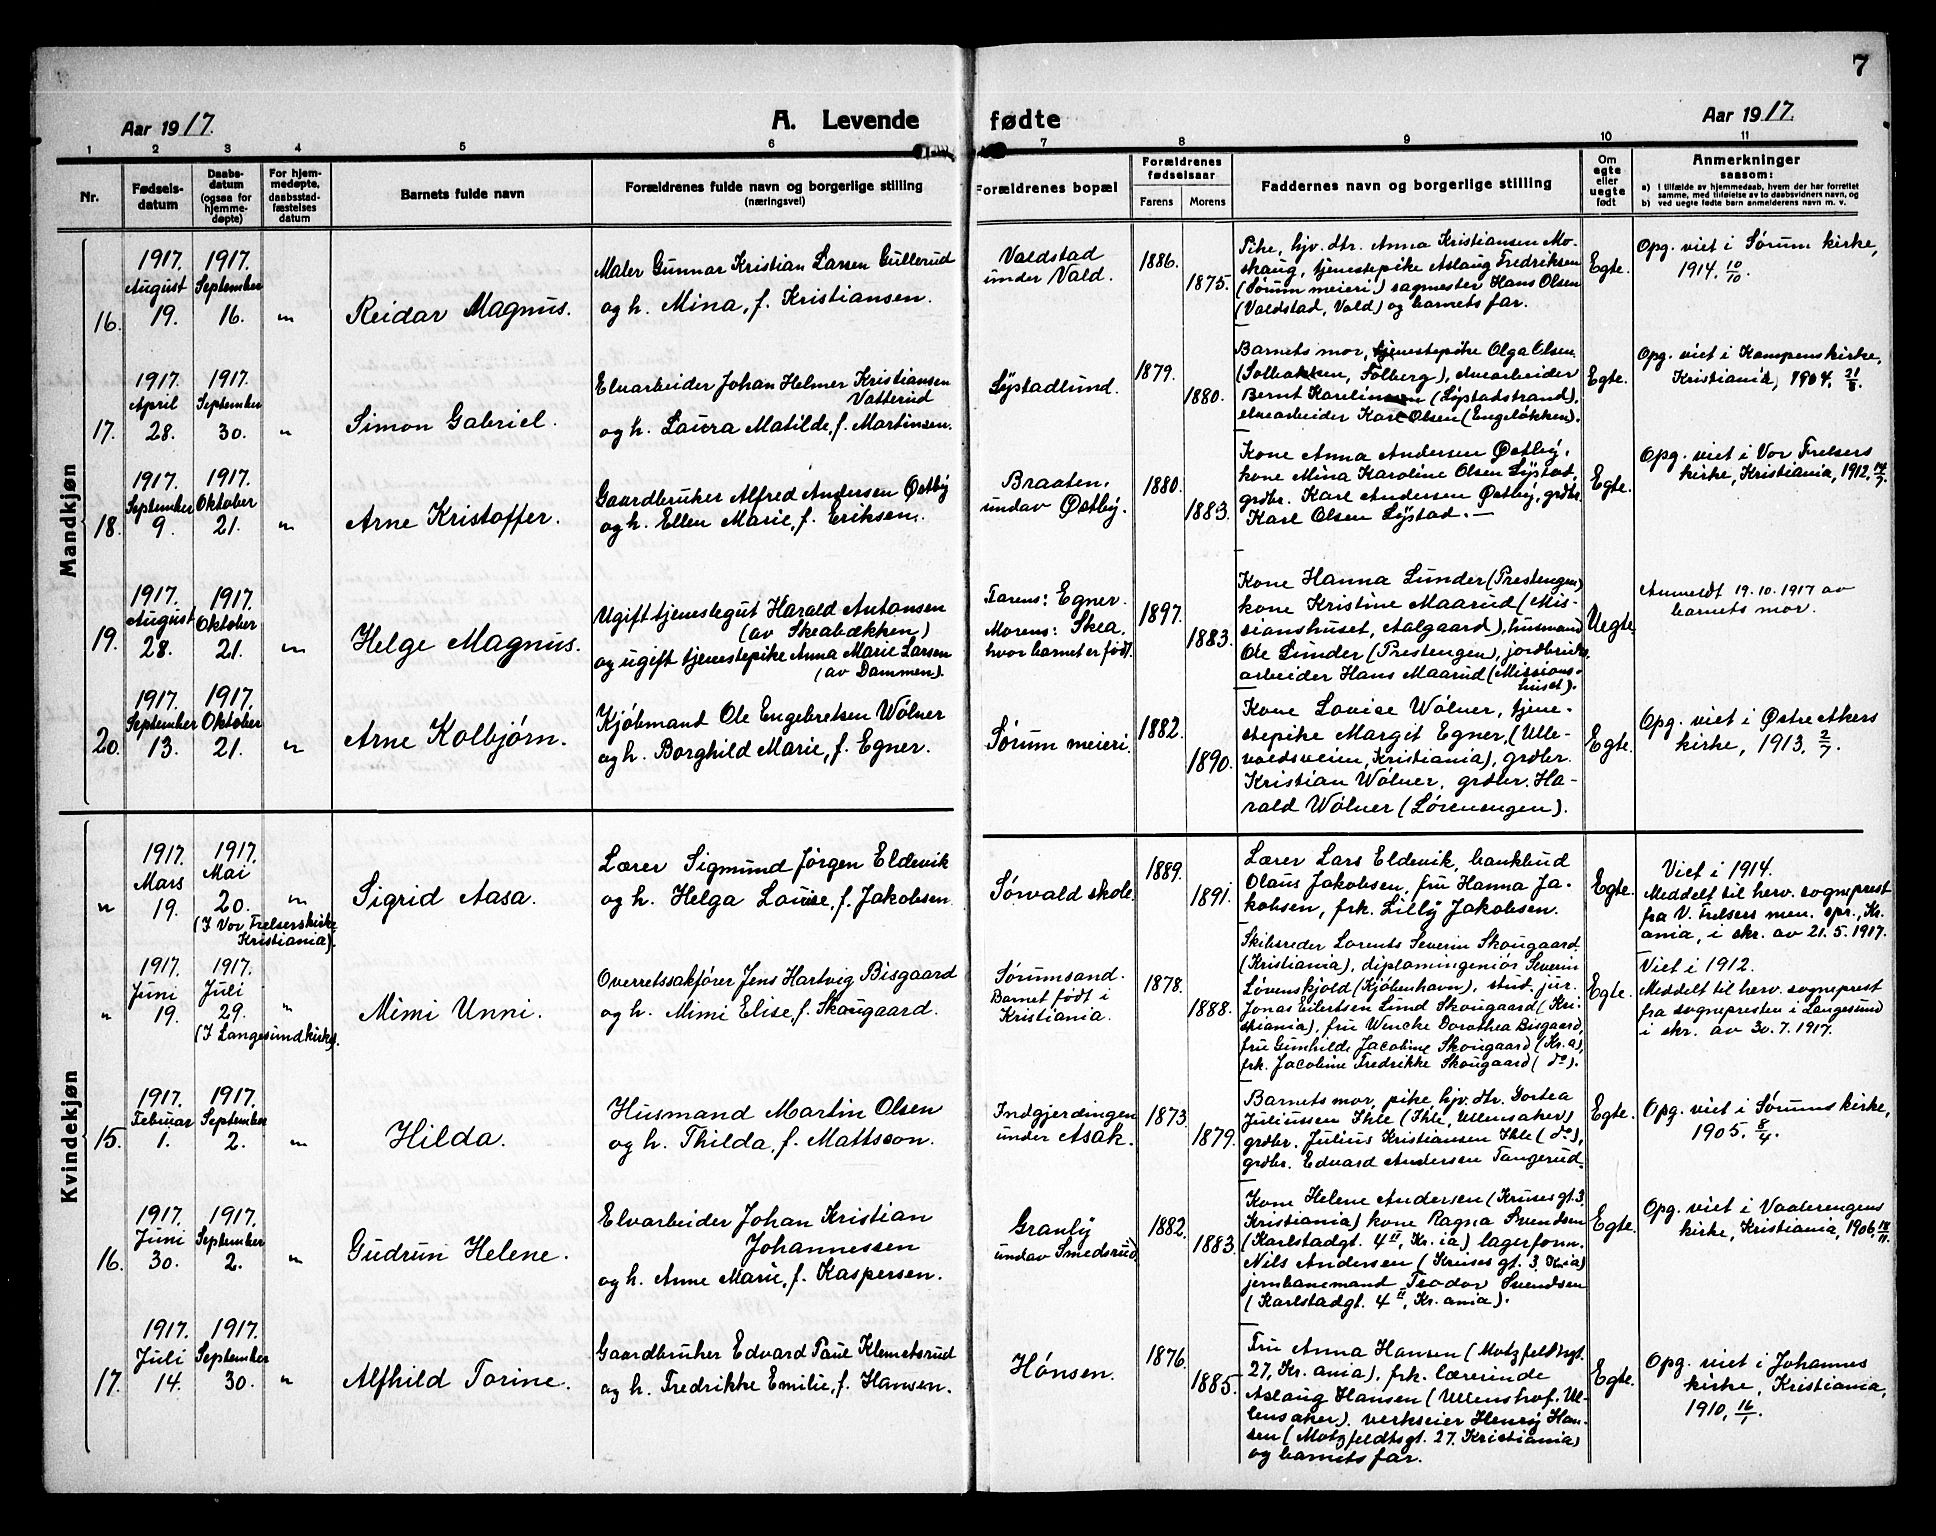 7
Aar 1917.
A. Levende fødte
Aar 1917.
1 2 3 4 5 6 7 8 9 10 11
Nr.
Fødsels-
datum
Daabs-
datum
(ogsaa for
hjemme-
døpte)
For hjem-
medøpte,
daabsstad-
fæstelses
datum
Barnets fulde navn
Forældrenes fulde navn og borgerlige stilling
(næringsvei)
Forældrenes bopæl
Forældrenes
fødselsaar
Farens
Morens
Faddernes navn og borgerlige stilling
Om
ægte
eller
uegte
født
Anmerkninger
saasom:
a) I tilfælde av hjemmedaab, hvem der har forrettet
samme, med tilføielse av to daabsvidners navn, og
b) ved uegte fødte barn anmelderens navn m. v.
Mandkjøn
16.
1917.
August
19.
1917.
September
16.
"
Reidar Magnus.
Maler Gunnar Kristian Larsen Gullerud
og h. Mina, f. Kristiansen.
Valdstad
under Vald.
1886.
1875.
Pike, hjv. dtr. Anna Kristiansen Mo-
skaug, tjenestepike Aslaug Fredriksen
(Sørum meieri) sagmester Hans Olsen
(Valdstad, Vald) og barnets far.
Egte.
Opg. viet i Sørum kirke,
1914. 10/10.
17.
1917.
April
28.
1917.
September
30.
"
Simon Gabriel.
Elvarbeider Johan Helmer Kristiansen
Vatterud
og h. Laura Matilde, f. Martinsen.
Lystadlund.
1879.
1880.
Barnets mor, tjenestepike Olga Olsen
(Solbakken, Folberg), elvearbeider
Bernt Karelinsen (Lystadstrand),
elvearbeider Karl Olsen (Engeløkken).
Egte.
Opg. viet i Kampens kirke,
Kristiania, 1904. 21/8.
18.
1917.
September
9.
1917.
Oktober
21.
"
Arne Kristoffer.
Gaardbruker Alfred Andersen Østby
og h. Ellen Marie, f. Eriksen.
Braaten,
undav Østby.
1880.
1883.
Kone Anna Andersen Østby,
kone Mina Karoline Olsen Lystad,
grdbr. Karl Andersen Østby, grdbr.
Karl Olsen Lystad. —
Egte.
Opg. viet i Vor Frelsers
kirke, Kristiania, 1912. 14/7.
19.
1917.
August
28.
1917.
Oktober
21.
"
Helge Magnus.
Ugift tjenestegut Harald Antonsen
(av Skeabækken)
og ugift tjenestepike Anna Marie Larsen
(av Dammen).
Farens: Egner.
Morens: Skea,
hvor barnet er født.
1897.
1883.
Kone Hanna Lunder (Prestengen)
kone Kristine Maarud (Mis-
sionshuset, Aalgaard), husmand
Ole Lunder (Prestengen), jordbruks-
arbeider Hans Maarud (Missions-
huset).
Uegte.
Anmeldt 19.10.1917 av
barnets mor.
20.
1917.
September
13.
1917.
Oktober
21.
"
Arne Kolbjørn.
Kjøbmand Ole Engebretsen Wölner
og h. Borghild Marie, f. Egner.
Sørum meieri.
1882.
1890.
Kone Lovise Wölner, tjene-
stepike Margit Egner, (Ulle-
voldsveien, Kristiania), grdbr.
Kristian Wölner, grdbr. Ha-
rald Wölner (Lørenengen).
Egte.
Opg. viet i Østre Akers
kirke, 1913. 2/7.
Kvindekjøn
"
1917.
Mars
19.
1917.
Mai
20.
(I Vor Frelsers kirke
Kristiania).
"
Sigrid Aasa.
Lærer Sigmund Jørgen Eldevik
og h. Helga Louise, f. Jakobsen.
Sørvald skole.
1889.
1891.
Lærer Lars Eldevik, bankbud
Olaus Jakobsen, fru Hanna Ja-
kobsen, frk. Lilly Jakobsen.
Egte.
Viet i 1914.
Meddelt til herv. sogneprest
fra V. Frelsers men. spr., Kr.
ania, i skr. av 21.5.1917.
"
1917.
Juni
19.
1917.
Juli
29.
(I Langesund kirke).
"
Mimi Unni.
Overretssakfører Jens Hartvig Bisgaard
og h. Mimi Elise, f. Skougaard.
Sørumsand.
Barnet født i
Kristiania.
1878.
1888.
Skibsreder Lorents Severin Skougaard
(Kristiania), diplomingeniør Severin
Lövenskjold (Kjöbenhavn), stud. jur.
Jonas Eilertsen Lund Skougaard (Kri-
stiania), fru Wencke Dorothea Bisgaard,
fru Gunhilde Jacobine Skougaard (Kr.a),
frk. Jacobine Fredrikke Skougaard (do).
Egte.
Viet i 1912.
Meddelt til herv. sogneprest
fra sognepresten i Langesund
i skr. av 30.7.1917.
15.
1917.
Februar
1.
1917.
September
2.
"
Hilda.
Husmand Martin Olsen
og h. Thilda, f. Mattsson.
Indgjerdingen
under Asak.
1873.
1879.
Barnets mor, pike hjv. dtr. Gortea
Juliussen Ihle (Ihle, Ullensaker)
grdbr. Julius Kristiansen Ihle (do),
grdbr. Edvard Andersen Tangerud.
Egte.
Opg. viet i Sørums kirke,
1905. 8/4.
16.
1917.
Juni
30.
1917.
September
2.
"
Gudrun Helene.
Elvarbeider Johan Kristian
Johannessen
og h. Anne Marie, f. Kaspersen.
Granly
undav Smedsrud.
1882.
1883.
Kone Helene Andersen (Kruses gt. 3,
Kristiania) kone Ragna Svendsen
(Karlstadgt. 4 II, Kr.ia) lagerform.
Nils Andersen (Kruses gt. 3, Kr.ia)
jernbanemand Teodor Svendsen
(Karlstadgt. 4 II, Kr.ania).
Egte.
Opg. viet i Vaalerengens
kirke, Kristiania, 1906.
17.
1917.
Juli
14.
1917.
September
30.
"
Alfhild Torine.
Gaardbruker Edvard Paul Klemetsrud
og h. Fredrikke Emilie, f. Hansen.
Hønsen.
1876.
1885.
Fru Anna Hansen (Motzfeldtsgt.
27, Kr.ania), frk. lærerinde
Aslaug Hansen (Ullenshof, Ul-
lensaker), verkseier Henry Han-
sen (Motzfeldtsgt. 27, Kristiania)
og barnets far.
Egte.
Opg. viet i Johannes
kirke, Kristiania,
1910, 16/1.